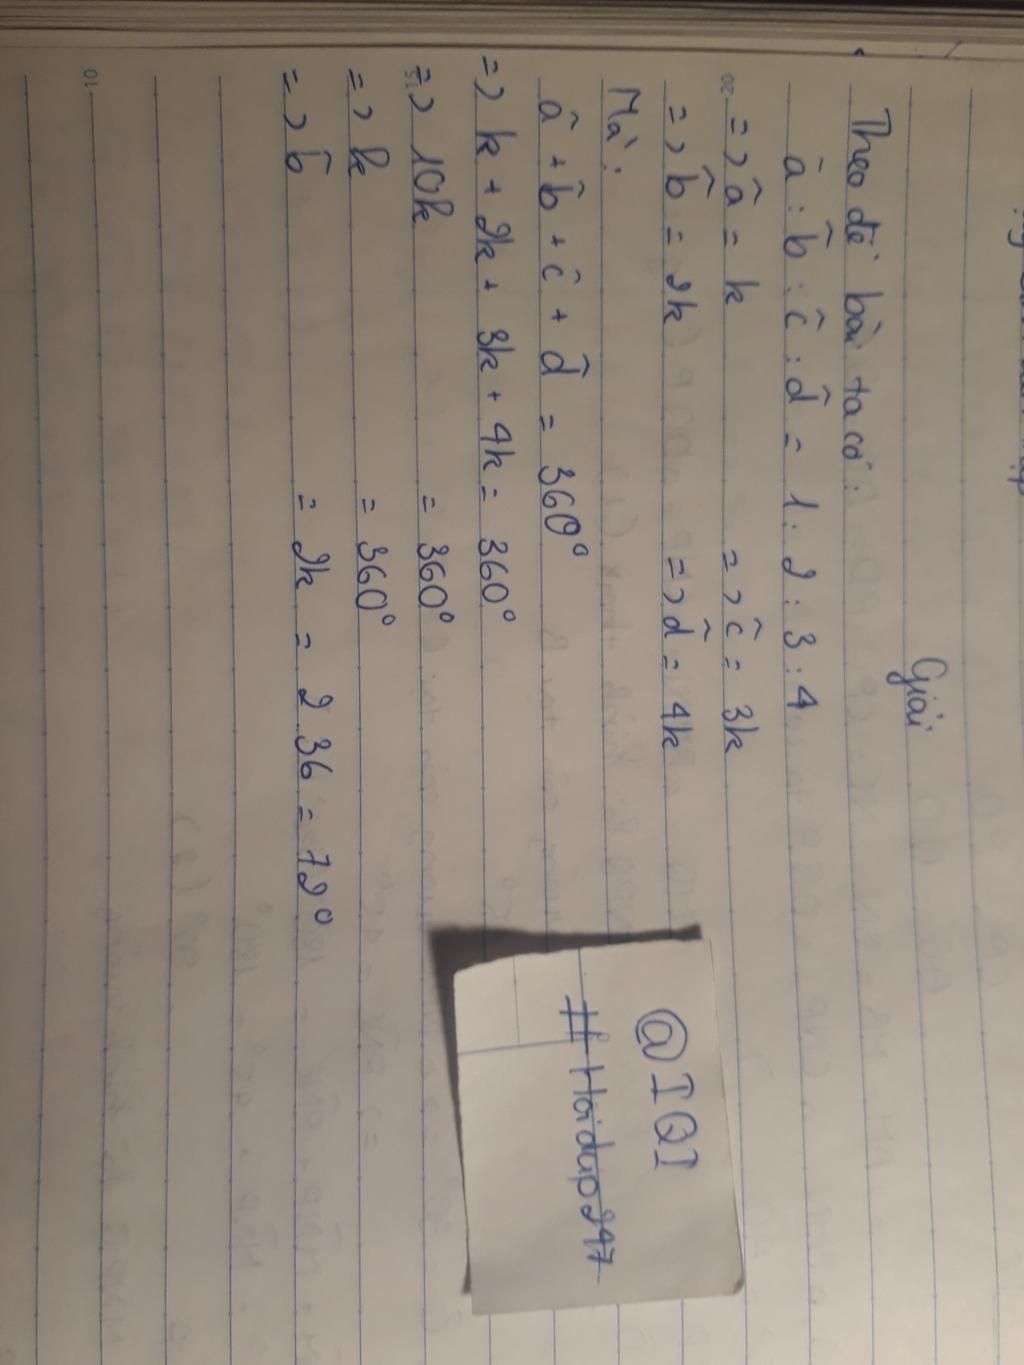 Giải
Theo đề bài ta có:
â : b̂ : ĉ : d̂ = 1 : 2 : 3 : 4
=> â = k => ĉ = 3k
=> b̂ = 2k => d̂ = 4k
Mà:
â + b̂ + ĉ + d̂ = 360°
=> k + 2k + 3k + 4k = 360°
=> 10k = 360°
=> k = 360°
=> b̂ = 2k = 2.36 = 72°
@IQI
#Hoidap247
20
15
10